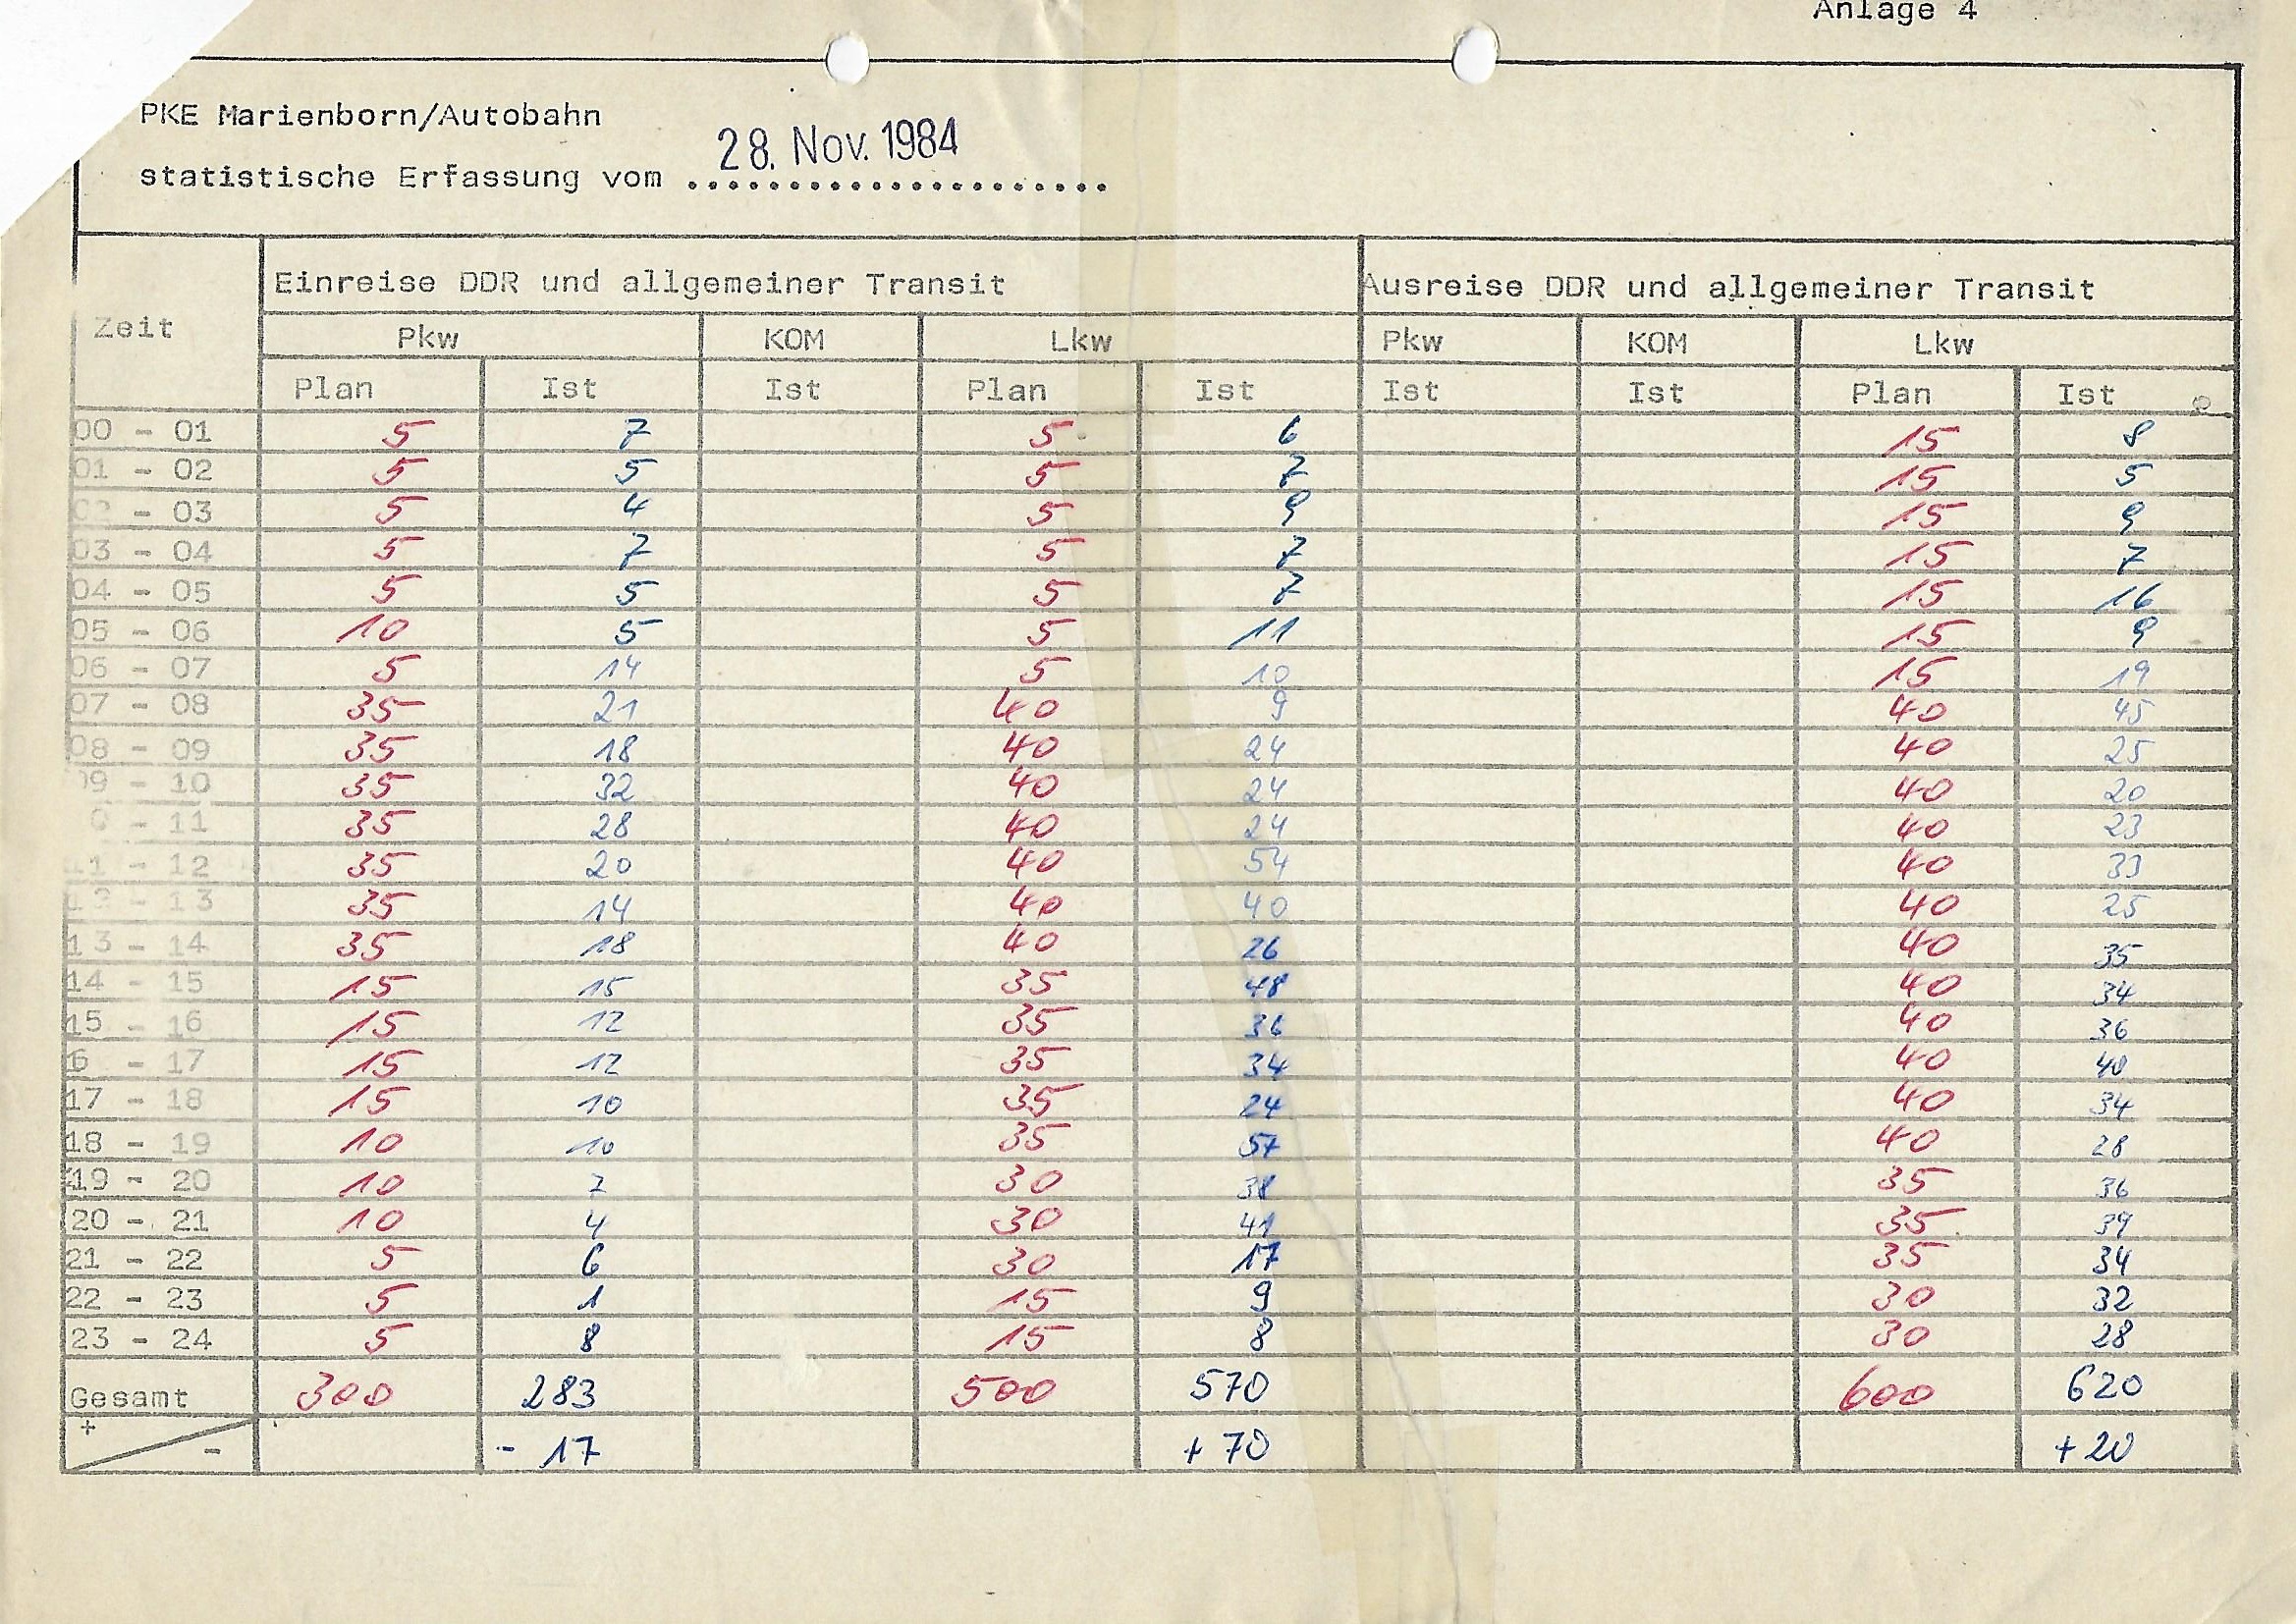 Anlage 4
PKE Marienborn/Autobahn
statistische Erfassung vom 28. Nov. 1984
Zeit Einreise DDR und allgemeiner Transit Ausreise DDR und allgemeiner Transit
Pkw KOM Lkw Pkw KOM Lkw
Plan Ist Ist Plan Ist Ist Ist Plan Ist
00 - 01 5 7 5 6 15 8
01 - 02 5 5 5 7 15 5
02 - 03 5 4 5 9 15 9
03 - 04 5 7 5 7 15 7
04 - 05 5 5 5 7 15 16
05 - 06 10 5 5 11 15 9
06 - 07 5 14 5 10 15 19
07 - 08 35 21 40 9 40 45
08 - 09 35 18 40 24 40 25
09 - 10 35 32 40 24 40 20
0 - 11 35 28 40 24 40 23
11 - 12 35 20 40 54 40 33
12 - 13 35 14 40 40 40 25
13 - 14 35 18 40 26 40 35
14 - 15 15 15 35 48 40 34
15 - 16 15 12 35 36 40 36
6 - 17 15 12 35 34 40 40
17 - 18 15 10 35 24 40 34
18 - 19 10 10 35 57 40 28
19 - 20 10 7 30 38 35 36
20 - 21 10 4 30 41 35 39
21 - 22 5 6 30 17 35 34
22 - 23 5 1 15 9 30 32
23 - 24 5 8 15 8 30 28
Gesamt 300 283 500 570 600 620
+ - - 17 + 70 + 20